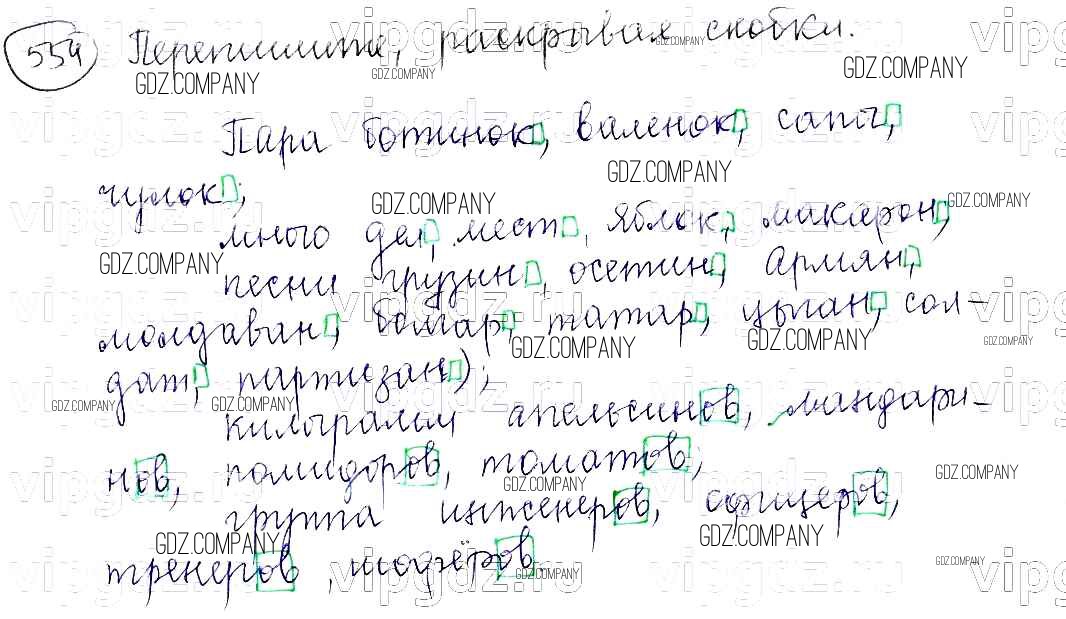 554 Перепишите, раскрывая скобки.
Пара ботинок, валенок, сапог,
чулок;
много дел, мест, яблок, макарон,
песни грузин, осетин, армян,
молдаван, болгар, татар, цыган, сол-
дат, партизан);
килограмм апельсинов, мандари-
нов, помидоров, томатов,
группа инженеров, офицеров,
тренеров, шофёров
GDZ.COMPANY
vipgdz.ru